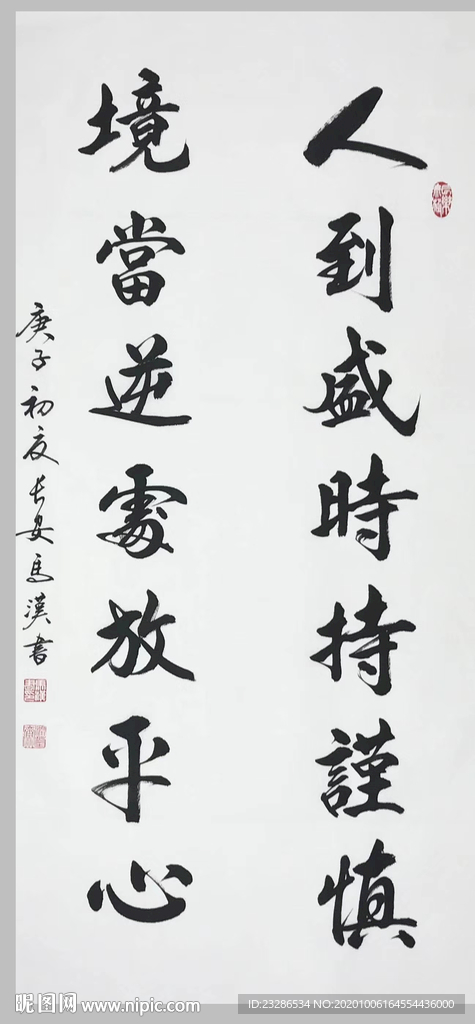 人到盛時持謹慎
境當逆處放平心
庚子初夏長安馬漢書
昵图网 www.nipic.com
ID:23286534 NO:20201006164554436000